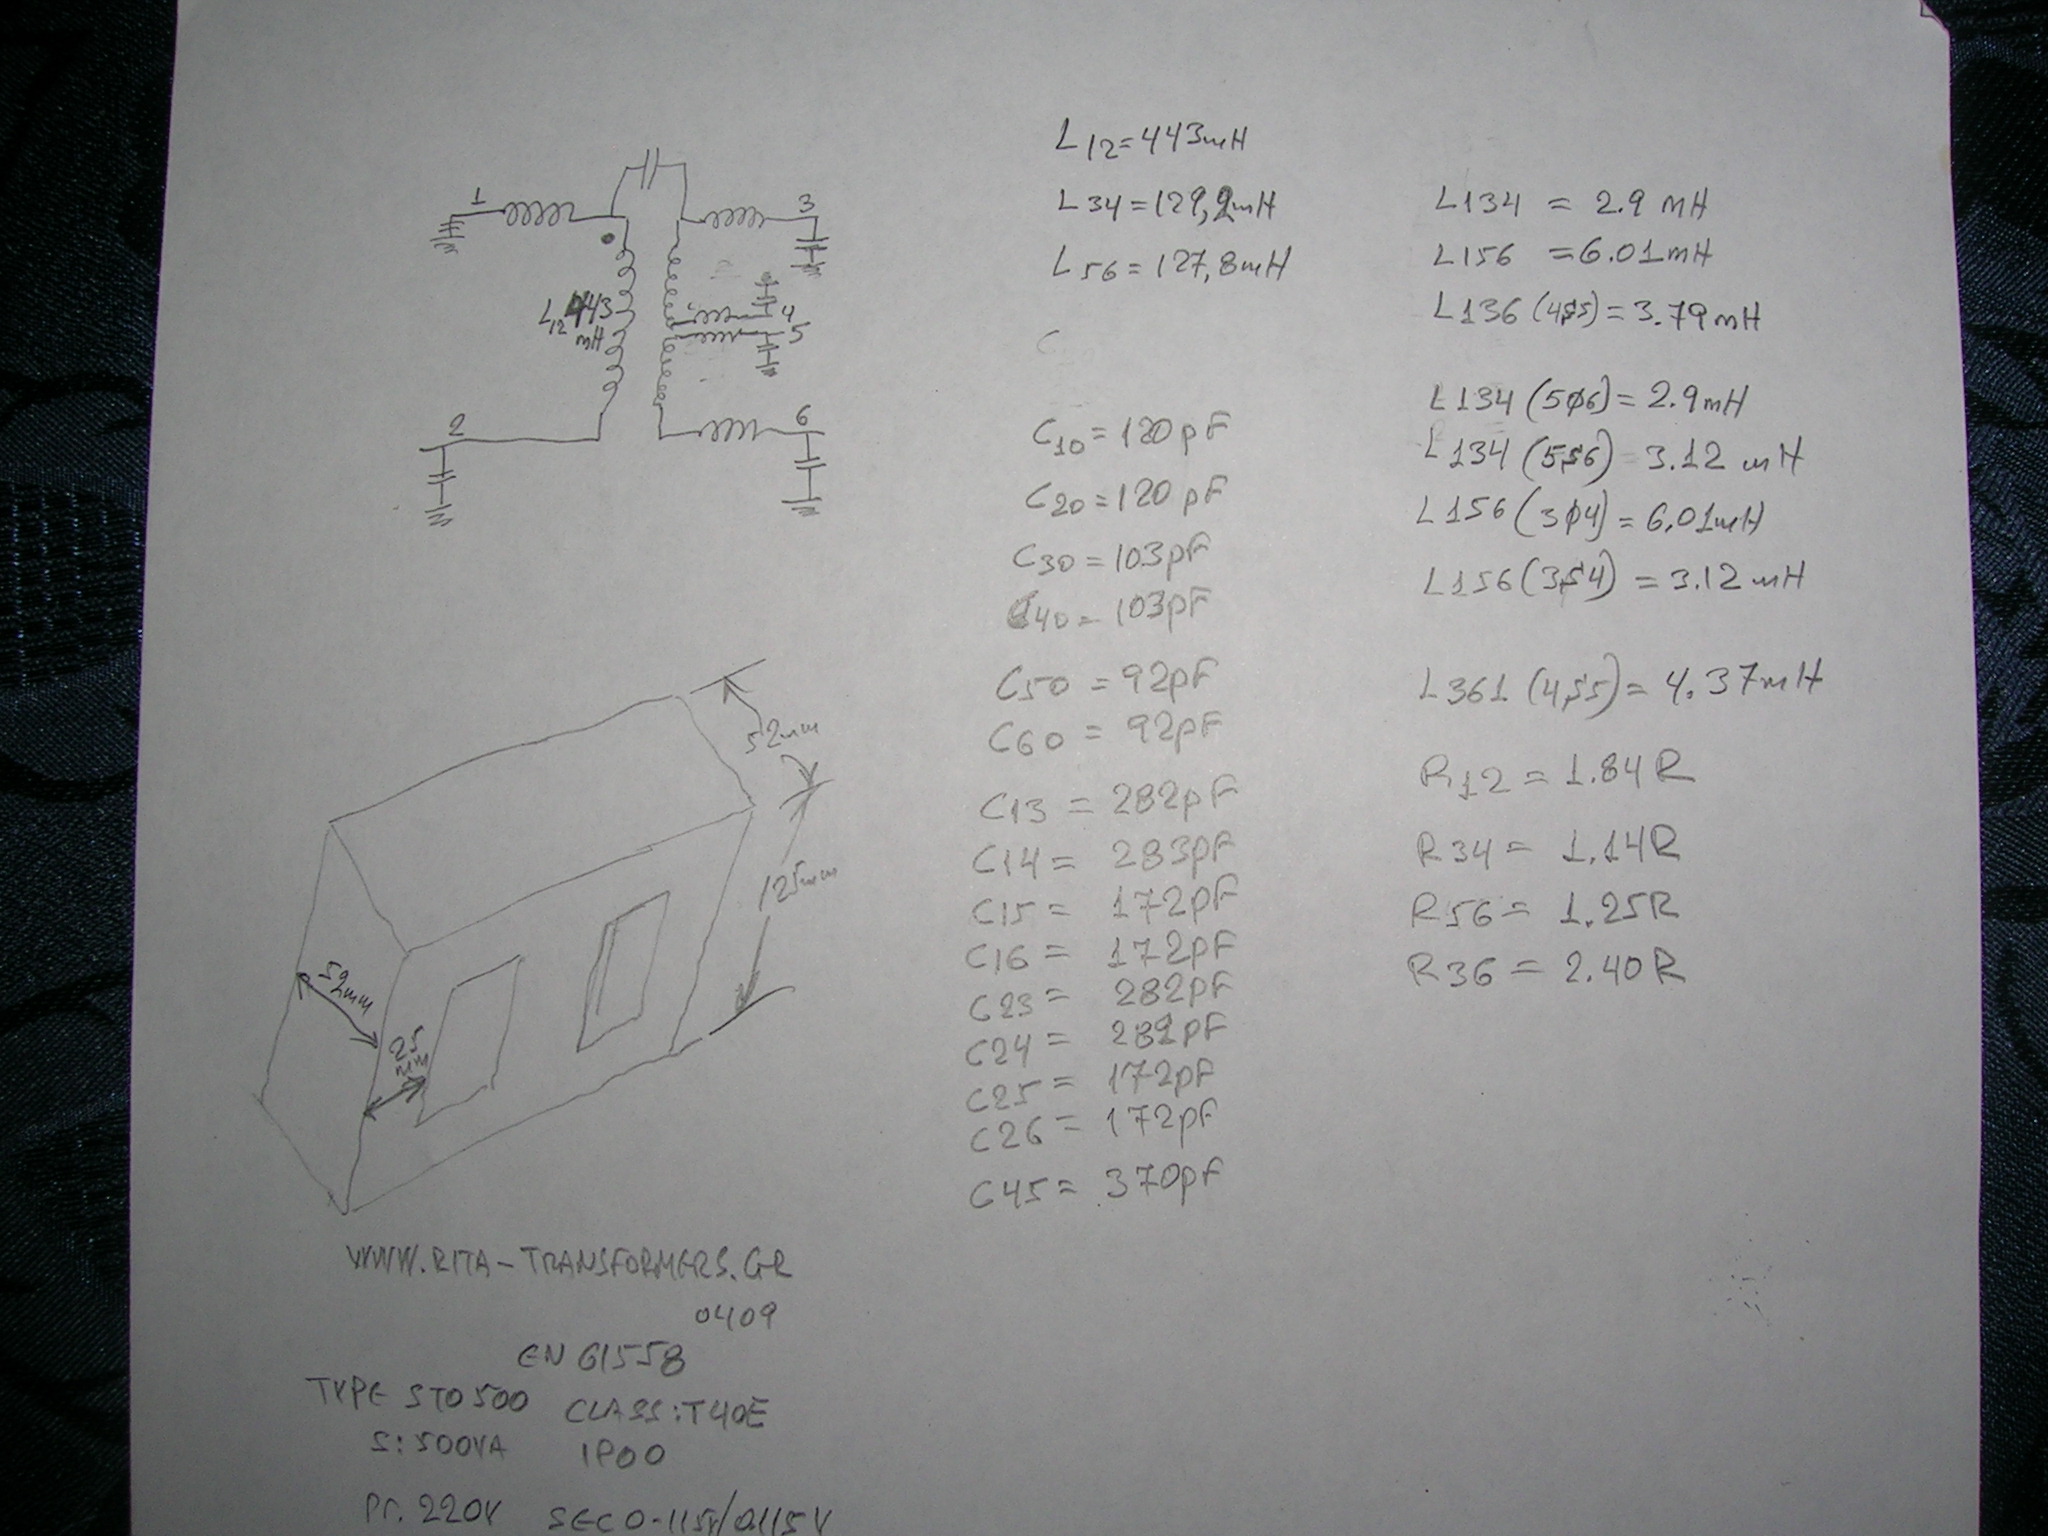 1
3
L12 443
mH
4
5
2
6
L12=443mH
L34=129,2mH
L56=127,8mH
C10=120pF
C20=120pF
C30=103pF
C40=103pF
C50=92pF
C60=92pF
C13=282pF
C14=283pF
C15=172pF
C16=172pF
C23=282pF
C24=282pF
C25=172pF
C26=172pF
C45=370pF
L134=2.9mH
L156=6.01mH
L136(4S5)=3.79mH
L134(5φ6)=2.9mH
L134(5S6) 3.12mH
L156(3φ4)=6.01mH
L156(3S4)=3.12mH
L361(4S5)=4.37mH
R12=1.84R
R34=1.14R
R56=1.25R
R36=2.40R
52mm
125mm
52mm
25
mm
WWW.RITA-TRANSFORMERS.GR
0409
EN 61558
TYPE STO500 CLASS:T40E
S:500VA IP00
Pr. 220V SEC 0-115V/0115V